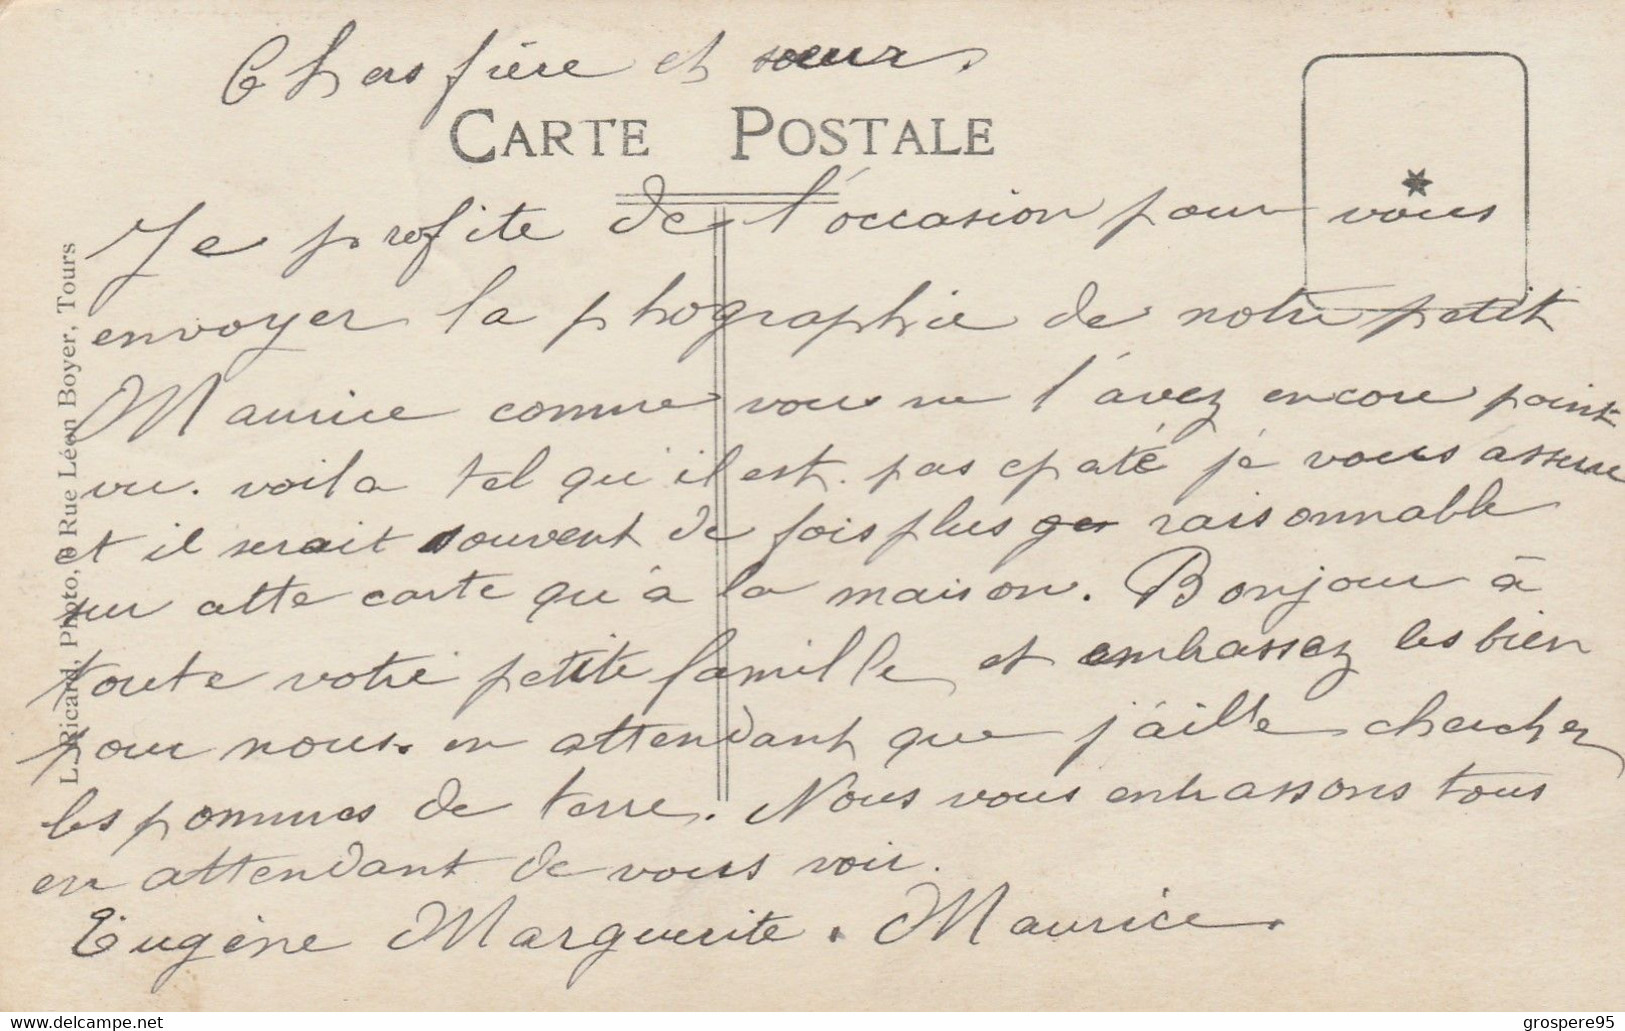 Chers frère et sœur.
CARTE POSTALE
Je profite de l'occasion pour vous
envoyer la phographie de notre petit
Maurice comme vous ne l'avez encore point
vu. voila tel qu'il est. pas épaté je vous assure
et il serait souvent de fois plus raisonnable
sur cette carte qu'à la maison. Bonjour à
toute votre petite famille et embrassez les bien
pour nous. en attendant que j'aille chercher
les pommes de terre. Nous vous embrassons tous
en attendant de vous voir.
Eugène Marguerite. Maurice.
L. Ricard, Photo, Rue Léon Boyer, Tours
delcampe.net
grospere95